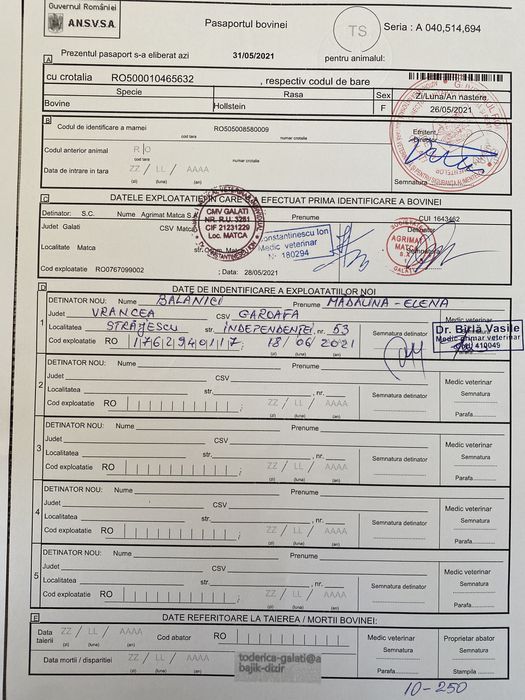 Guvernul României
A.N.S.V.S.A.
Pasaportul bovinei
TS
Seria : A 040,514,694
A
Prezentul pasaport s-a eliberat azi 31/05/2021 pentru animalul:
cu crotalia RO500010465632 , respectiv codul de bare
Specie Rasa Sex Zi/Luna/An nastere
Bovine Hollstein F 26/05/2021
B
Codul de identificare a mamei RO505008580009
cod tara numar crotalie
Codul anterior animal R O
cod tara numar crotalie
Data de intrare in tara ZZ / LL / AAAA
(zi) (luna) (an)
Emitent,
Director
Semnatura
C
DATELE EXPLOATATIEI IN CARE S-A EFECTUAT PRIMA IDENTIFICARE A BOVINEI
Detinator: S.C. Nume Agrimat Matca S. Prenume CUI 1643462
Judet Galati CSV Matca Detinator
Localitate Matca str.
Semnatura
Cod exploatatie RO0767099002 ; Data: 28/05/2021
CMV GALATI
NR. R.U. 3281
CIF 21231229
Loc. MATCA
Constantinescu Ion
Medic veterinar
Nr. 180294
SOCIETATEA
AGRIMAT
MATCA
GALATI
D
DATE DE INDENTIFICARE A EXPLOATATIILOR NOI
1
DETINATOR NOU: Nume BALANICI Prenume MADALINA-ELENA
Judet VRANCEA CSV GAROAFA
Localitatea STRĂJESCU str. INDEPENDENTEI, nr. 53
Cod exploatatie RO 1762940117 18/06/2021
(zi) (luna) (an)
Semnatura detinator
Medic veterinar
Dr. Bîrlă Vasile
Medic primar veterinar
Cod 410049
2
DETINATOR NOU: Nume Prenume
Judet CSV
Localitatea str. , nr.
Cod exploatatie RO ZZ / LL / AAAA
(zi) (luna) (an)
Semnatura detinator
Medic veterinar
Semnatura
Parafa
3
DETINATOR NOU: Nume Prenume
Judet CSV
Localitatea str. , nr.
Cod exploatatie RO ZZ / LL / AAAA
(zi) (luna) (an)
Semnatura detinator
Medic veterinar
Semnatura
Parafa
4
DETINATOR NOU: Nume Prenume
Judet CSV
Localitatea str. , nr.
Cod exploatatie RO ZZ / LL / AAAA
(zi) (luna) (an)
Semnatura detinator
Medic veterinar
Semnatura
Parafa
5
DETINATOR NOU: Nume Prenume
Judet CSV
Localitatea str. , nr.
Cod exploatatie RO ZZ / LL / AAAA
(zi) (luna) (an)
Semnatura detinator
Medic veterinar
Semnatura
Parafa
E
DATE REFERITOARE LA TAIEREA / MORTII BOVINEI:
Data taierii ZZ / LL / AAAA Cod abator RO Medic veterinar Proprietar abator
(zi) (luna) (an)
Semnatura Semnatura
Data mortii / disparitiei ZZ / LL / AAAA Parafa Stampila
(zi) (luna) (an)
toderica-galati@a
bajik-dizir
10-250